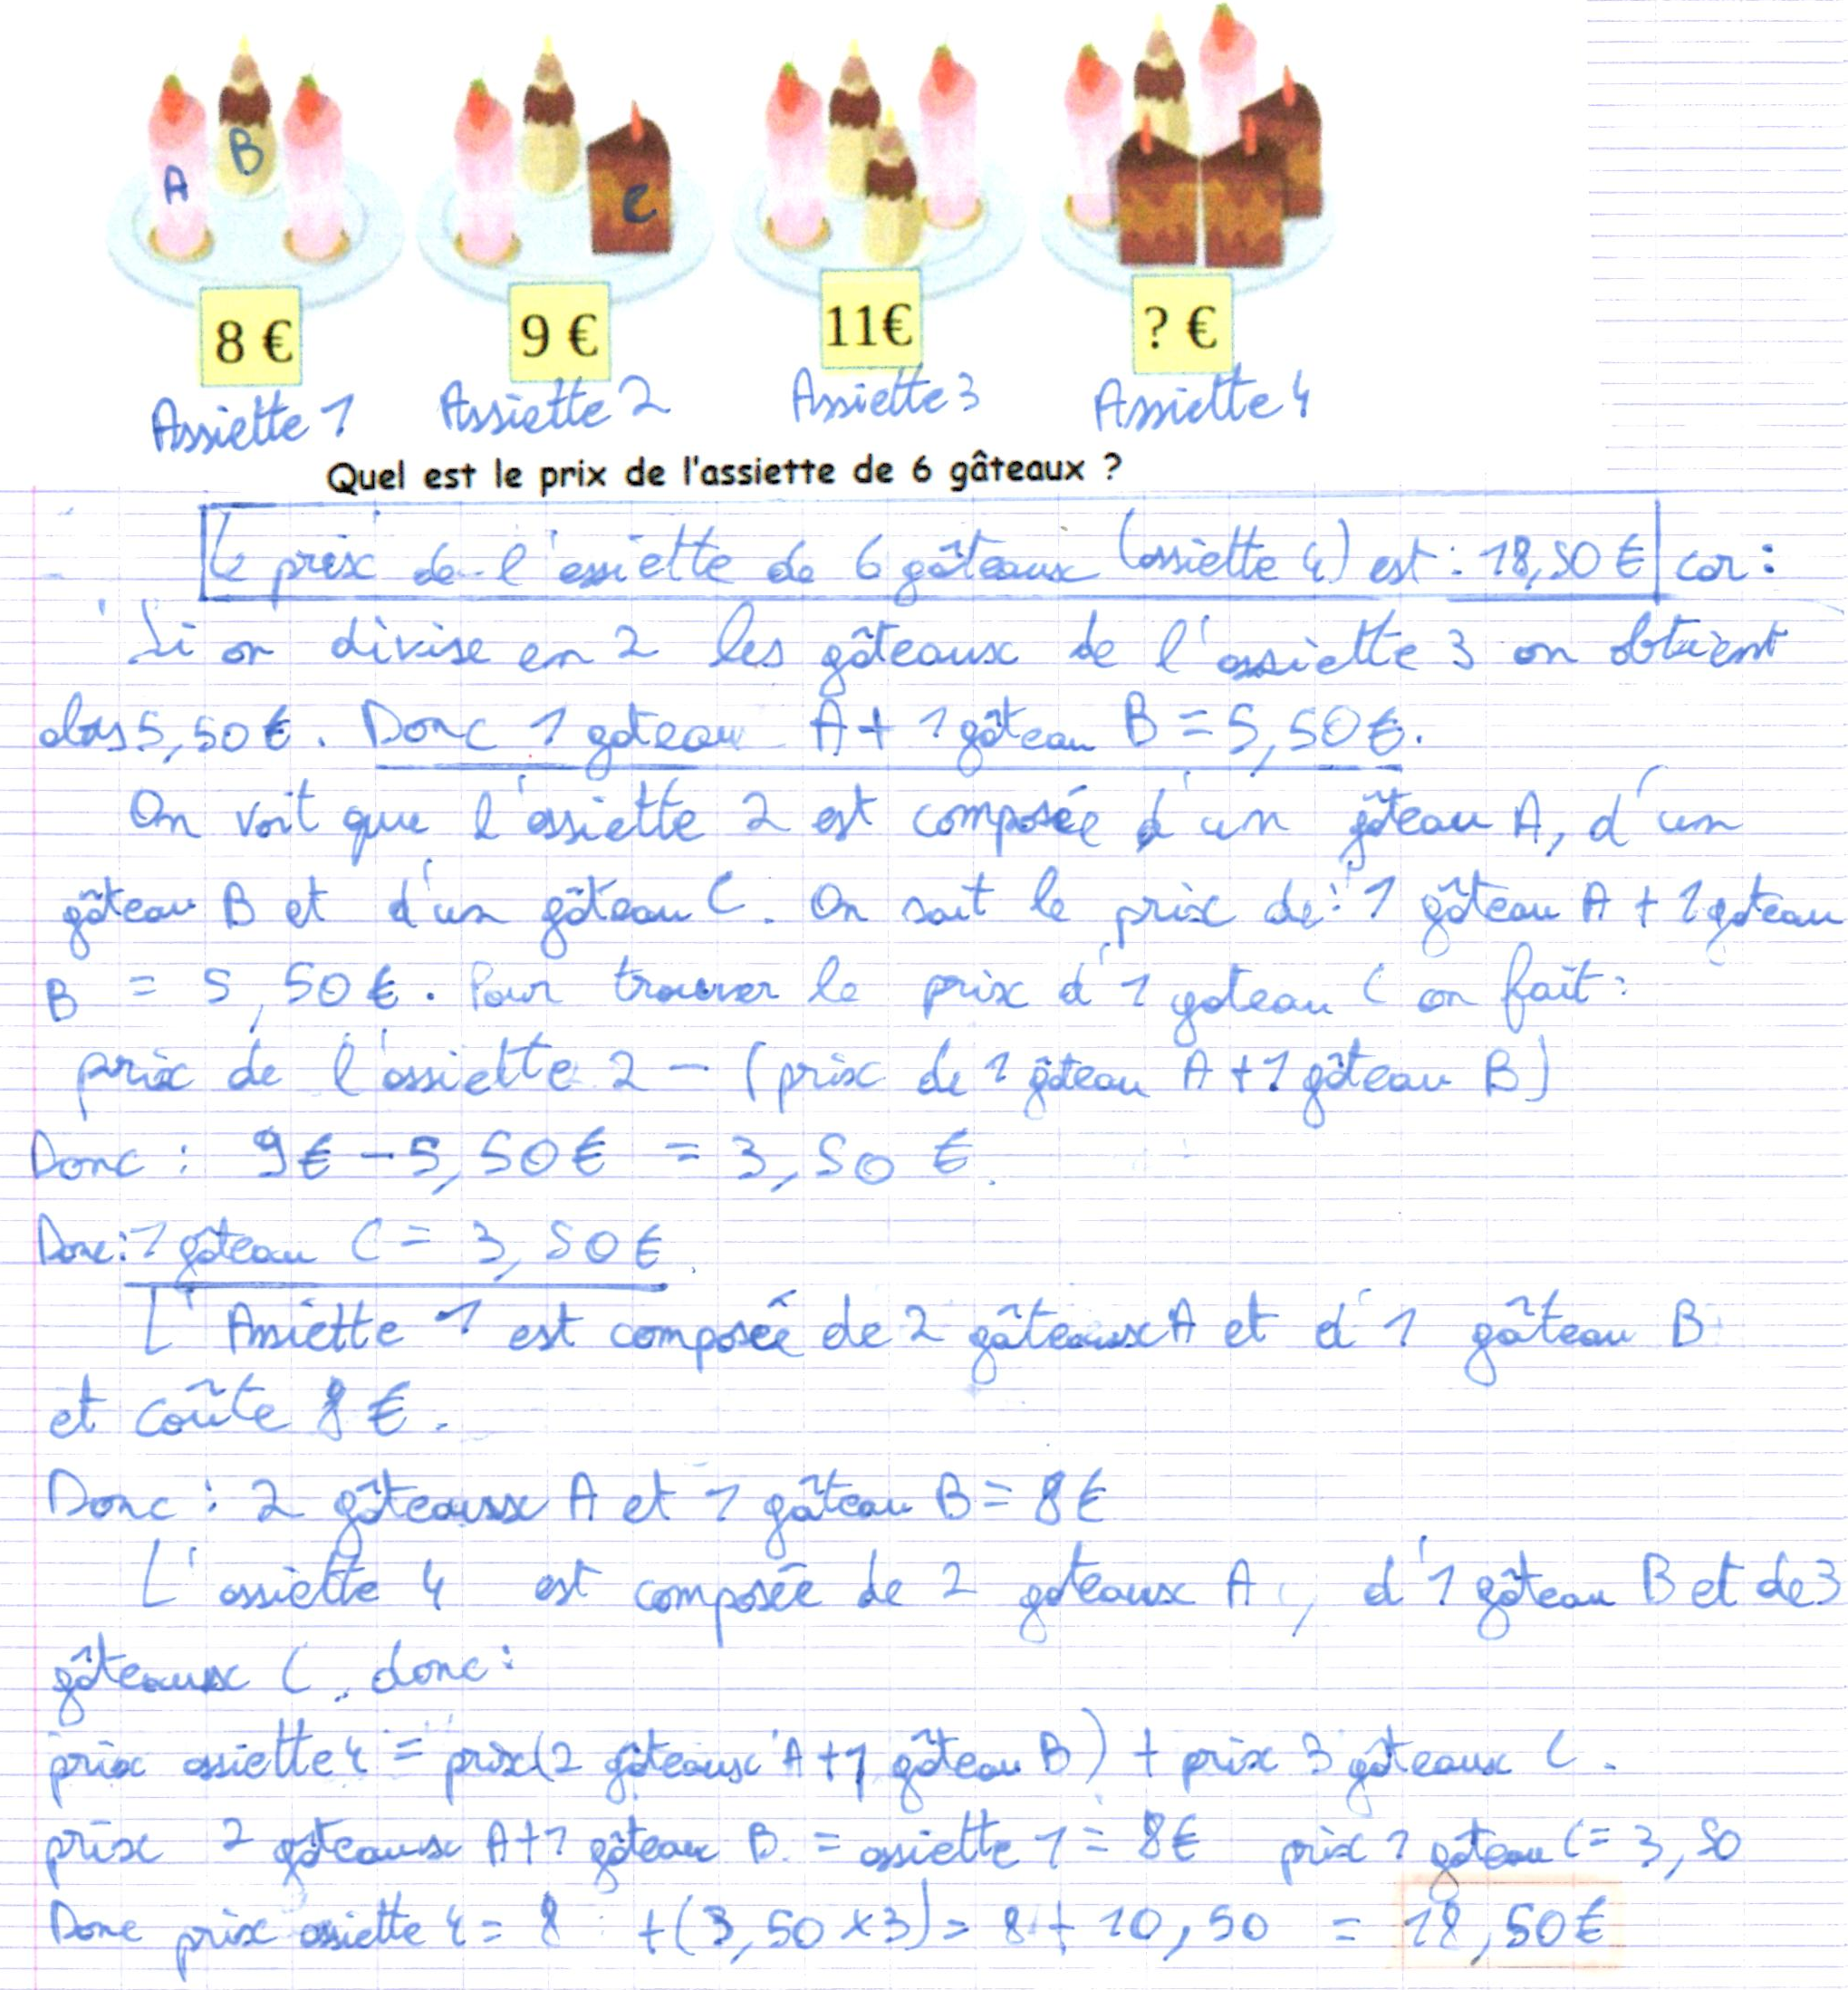 A B C
8 € 9 € 11€ ? €
Assiette 1 Assiette 2 Assiette 3 Assiette 4
Quel est le prix de l'assiette de 6 gâteaux ?
Le prix de l'assiette de 6 gâteaux (assiette 4) est : 18,50 € car :
Si on divise en 2 les gâteaux de l'assiette 3 on obtient
alors 5,50 €. Donc 1 gateau A + 1 gâteau B = 5,50 €.
On voit que l'assiette 2 est composée d'un gâteau A, d'un
gâteau B et d'un gâteau C. On sait le prix de : 1 gâteau A + 1 gateau
B = 5,50 €. Pour trouver le prix d'1 gateau C on fait :
prix de l'assiette 2 - (prix de 1 gâteau A + 1 gâteau B)
Donc : 9 € - 5,50 € = 3,50 €.
Donc : 1 gâteau C = 3,50 €.
L'Assiette 1 est composée de 2 gâteaux A et d'1 gâteau B
et coûte 8 €.
Donc : 2 gâteaux A et 1 gâteau B = 8 €
L'assiette 4 est composée de 2 gateaux A, d'1 gâteau B et de 3
gâteaux C, donc :
prix assiette 4 = prix (2 gâteaux A + 1 gâteau B) + prix 3 gâteaux C.
prix 2 gâteaux A + 1 gâteau B = assiette 1 = 8 € prix 1 gateau C = 3,50
Donc prix assiette 4 = 8 + (3,50 x 3) = 8 + 10,50 = 18,50 €